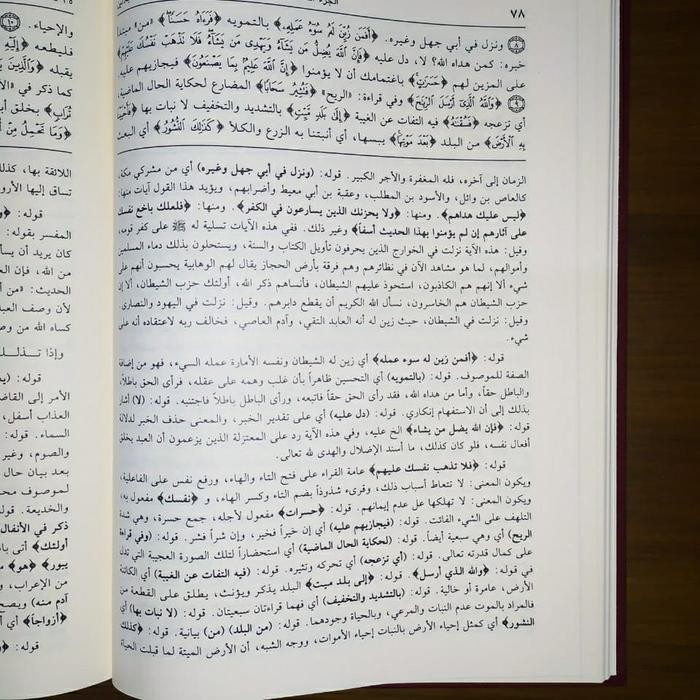 ٧٨
﴿٨﴾ ونزل في أبي جهل وغيره. ﴿أَفَمَن زُيِّنَ لَهُ سُوءُ عَمَلِهِ﴾ بالتمويه ﴿فَرَءَاهُ حَسَنًا﴾ «من» مبتدأ
خبره: كمن هداه الله؟ لا، دل عليه ﴿فَإِنَّ اللَّهَ يُضِلُّ مَن يَشَاءُ وَيَهْدِي مَن يَشَاءُ فَلَا تَذْهَبْ نَفْسُكَ عَلَيْهِمْ﴾
على المزين لهم ﴿حَسَرَاتٍ﴾ باغتمامك أن لا يؤمنوا ﴿إِنَّ اللَّهَ عَلِيمٌ بِمَا يَصْنَعُونَ﴾ فيجازيهم عليه.
﴿٩﴾ ﴿وَاللَّهُ الَّذِي أَرْسَلَ الرِّيَاحَ﴾ وفي قراءة: «الريح» ﴿فَتُثِيرُ سَحَابًا﴾ المضارع لحكاية الحال الماضية،
أي تزعجه ﴿فَسُقْنَاهُ﴾ فيه التفات عن الغيبة ﴿إِلَىٰ بَلَدٍ مَّيِّتٍ﴾ بالتشديد والتخفيف لا نبات بها ﴿فَأَحْيَيْنَا
بِهِ الْأَرْضَ﴾ من البلد ﴿بَعْدَ مَوْتِهَا﴾ يبسها، أي أنبتنا به الزرع والكلأ ﴿كَذَٰلِكَ النُّشُورُ﴾ أي البعث
الزمان إلى آخره، فله المغفرة والأجر الكبير. قوله: (ونزل في أبي جهل وغيره) أي من مشركي مكة،
كالعاص بن وائل، والأسود بن المطلب، وعقبة بن أبي معيط وأضرابهم، ويؤيد هذا القول آيات منها:
﴿ليس عليك هداهم﴾. ومنها: ﴿ولا يحزنك الذين يسارعون في الكفر﴾. ومنها: ﴿فلعلك باخع نفسك
على آثارهم إن لم يؤمنوا بهذا الحديث أسفاً﴾ وغير ذلك. ففي هذه الآيات تسلية له ﷺ على كفر قومه،
وقيل: هذه الآية نزلت في الخوارج الذين يحرفون تأويل الكتاب والسنة، ويستحلون بذلك دماء المسلمين
وأموالهم، لما هو مشاهد الآن في نظائرهم وهم فرقة بأرض الحجاز يقال لهم الوهابية يحسبون أنهم على
شيء ألا إنهم هم الكاذبون، استحوذ عليهم الشيطان، فأنساهم ذكر الله، أولئك حزب الشيطان، ألا إن
حزب الشيطان هم الخاسرون، نسأل الله الكريم أن يقطع دابرهم. وقيل: نزلت في اليهود والنصارى،
وقيل: نزلت في الشيطان، حيث زين له أنه العابد التقي، وآدم العاصي، فخالف ربه لاعتقاده أنه على
شيء.
قوله: ﴿أفمن زين له سوء عمله﴾ أي زين له الشيطان ونفسه الأمارة عمله السيء، فهو من إضافة
الصفة للموصوف. قوله: (بالتمويه) أي التحسين ظاهراً بأن غلب وهمه على عقله، فرأى الحق باطلاً،
والباطل حقاً، وأما من هداه الله، فقد رأى الحق حقاً فاتبعه، ورأى الباطل باطلاً فاجتنبه. قوله: (لا) أشار
بذلك إلى أن الاستفهام إنكاري. قوله: (دل عليه) أي على تقدير الخبر، والمعنى حذف الخبر لدلالة
قوله: ﴿فإن الله يضل من يشاء﴾ الخ عليه، وفي هذه الآية رد على المعتزلة الذين يزعمون أن العبد يخلق
أفعال نفسه، فلو كان كذلك، ما أسند الإضلال والهدى لله تعالى.
قوله: ﴿فلا تذهب نفسك عليهم﴾ عامة القراء على فتح التاء والهاء، ورفع نفس على الفاعلية،
ويكون المعنى: لا تتعاط أسباب ذلك، وقرىء شذوذاً بضم التاء وكسر الهاء، و ﴿نفسك﴾ مفعول به،
ويكون المعنى: لا تهلكها على عدم إيمانهم. قوله: ﴿حسرات﴾ مفعول لأجله، جمع حسرة، وهي شدة
التلهف على الشيء الفائت. قوله: (فيجازيهم عليه) أي إن خيراً فخير، وإن شراً فشر. قوله: (وفي قراءة
الريح) أي وهي سبعية أيضاً. قوله: (لحكاية الحال الماضية) أي استحضاراً لتلك الصورة العجيبة التي تدل
على كمال قدرته تعالى. قوله: (أي تزعجه) أي تحركه وتثيره. قوله: (فيه التفات عن الغيبة) أي الكائنة
في قوله: ﴿والله الذي أرسل﴾. قوله: ﴿إلى بلد ميت﴾ البلد يذكر ويؤنث، يطلق على القطعة من
الأرض، عامرة أو خالية. قوله: (بالتشديد والتخفيف) أي فهما قراءتان سبعيتان. قوله: (لا نبات بها) أي
فالمراد بالموت عدم النبات والمرعي، وبالحياة وجودهما. قوله: (من البلد) (من) بيانية. قوله: ﴿كذلك
النشور﴾ أي كمثل إحياء الأرض بالنبات إحياء الأموات، ووجه الشبه، أن الأرض الميتة لما قبلت الحياة